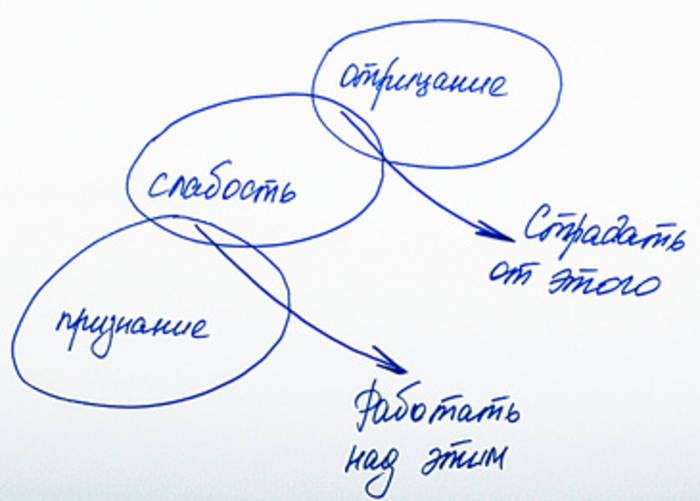 отрицание
слабость
Страдать
от этого
признание
Работать
над этим